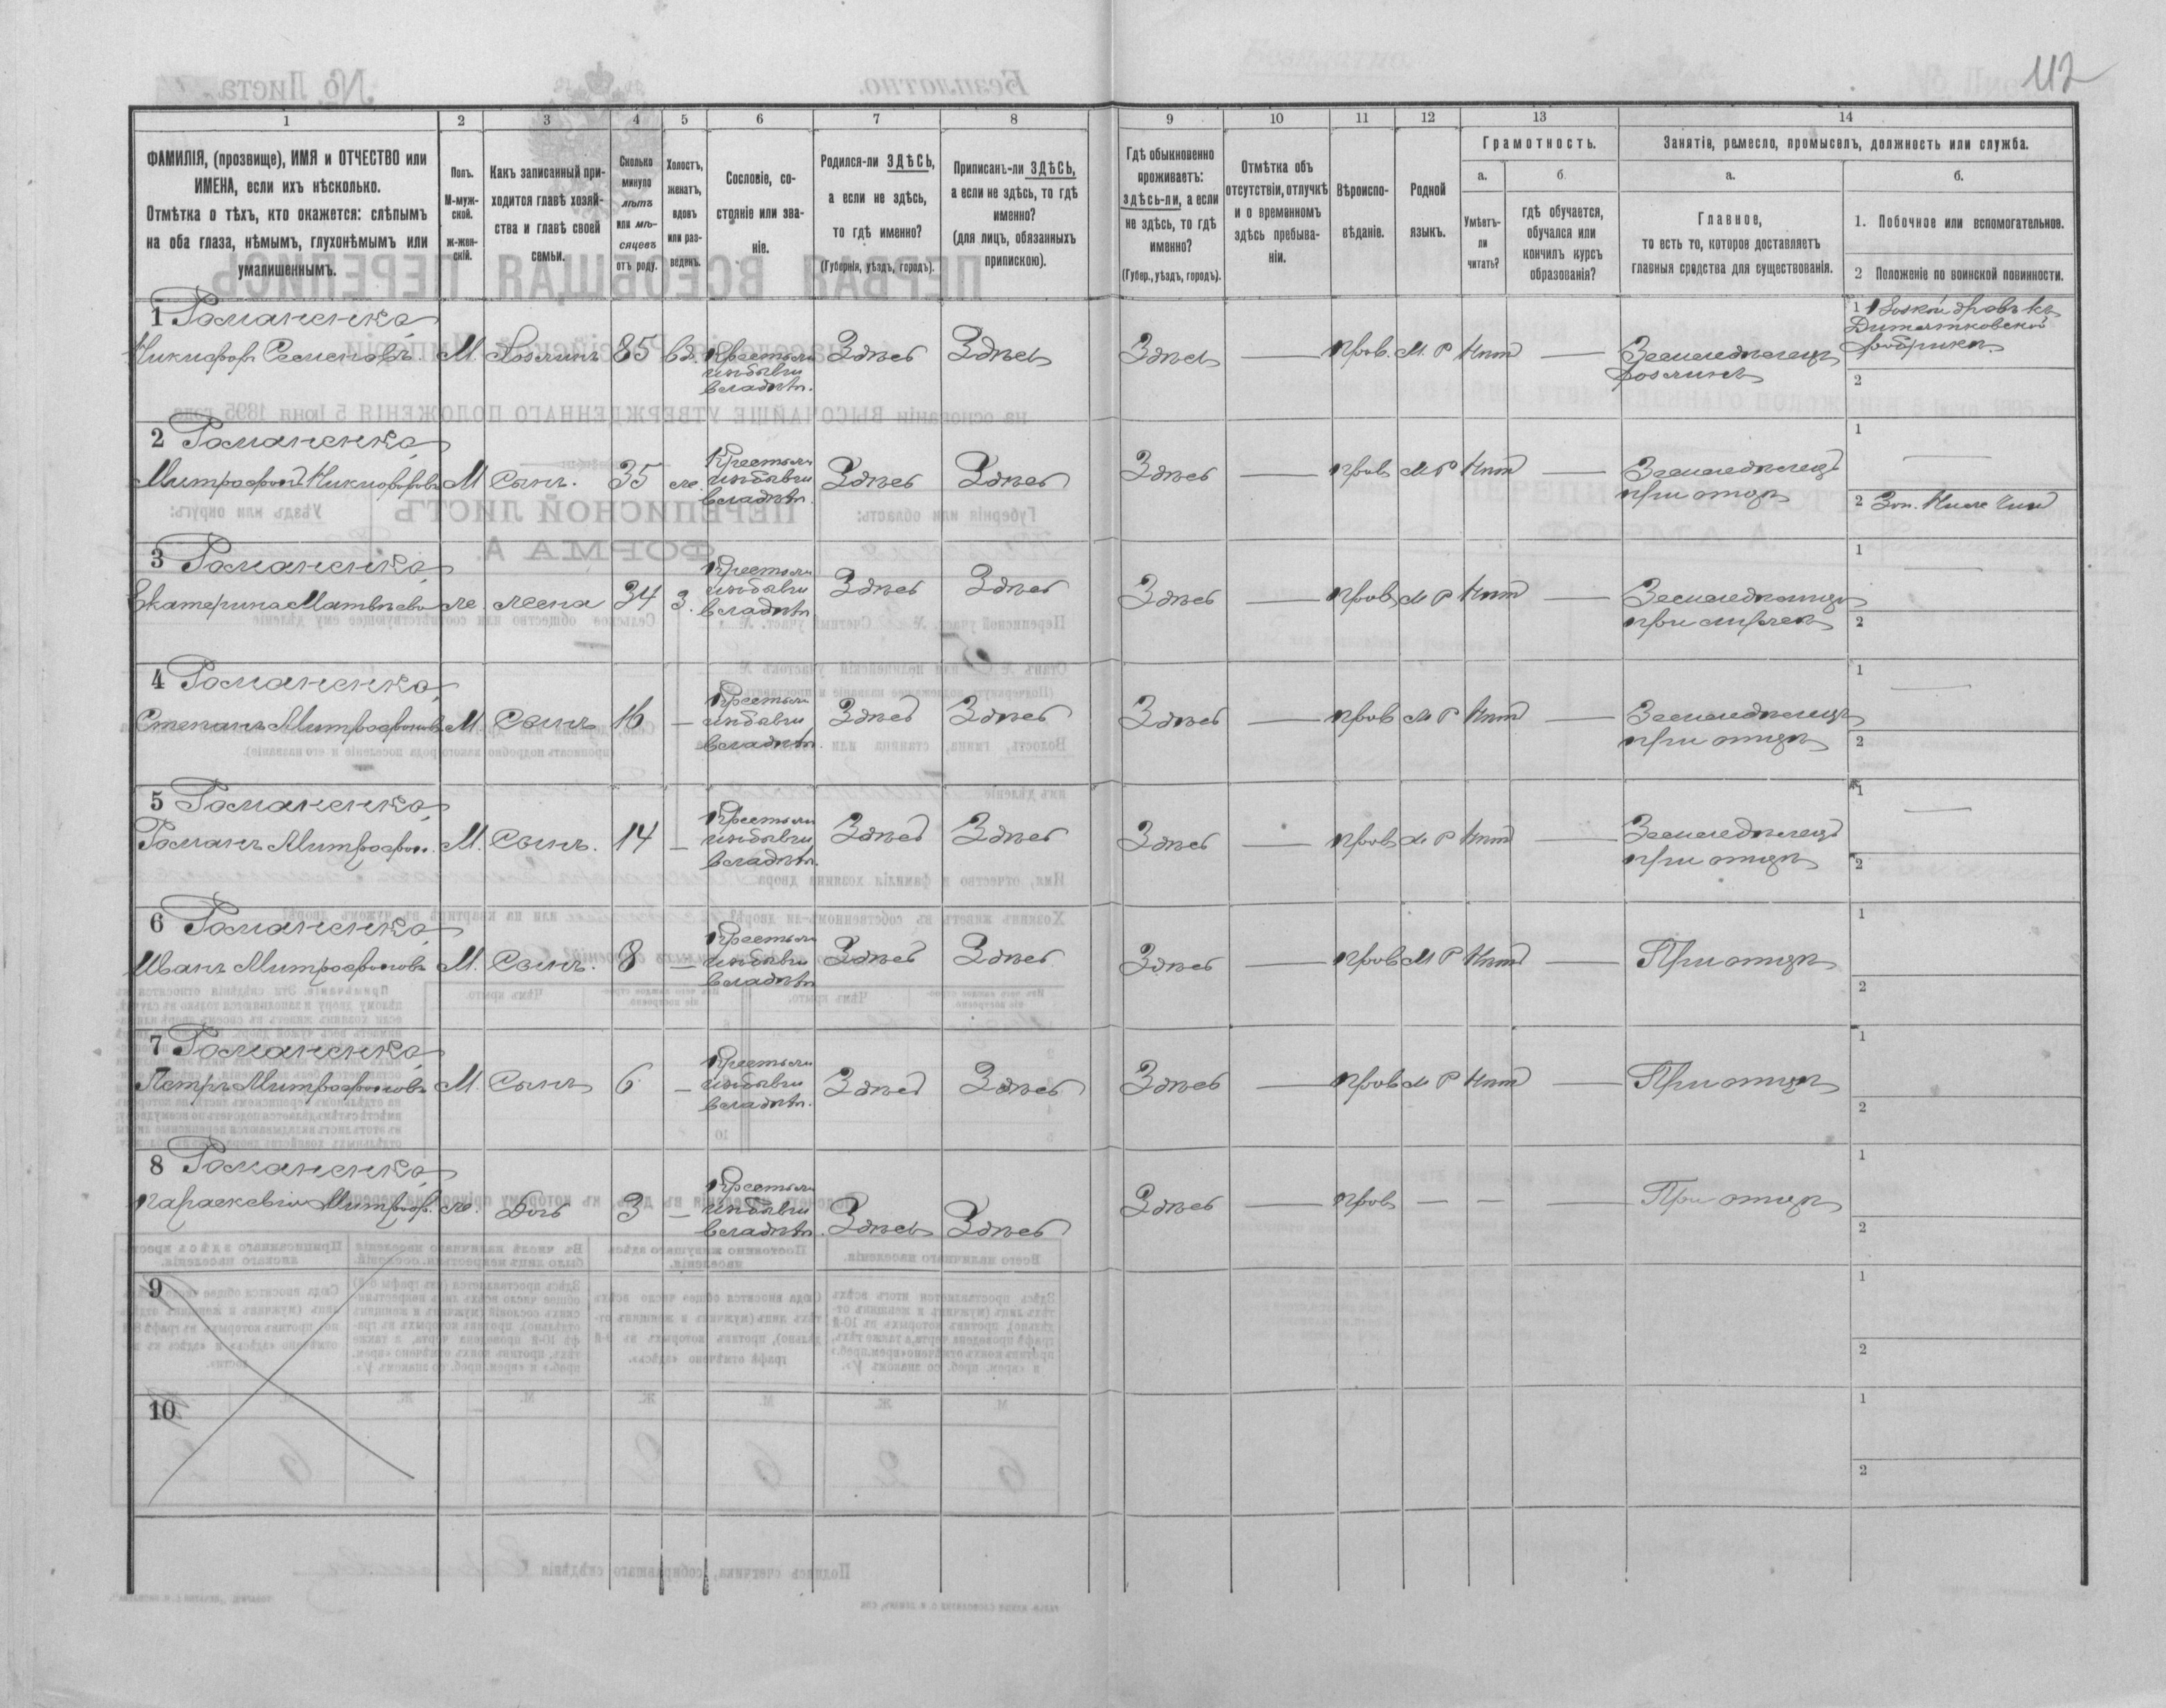 112
1
2
3
4
5
6
7
8
9
10
11
12
13
14
ФАМИЛІЯ, (прозвище), ИМЯ и ОТЧЕСТВО или
ИМЕНА, если ихъ нѣсколько.
Отмѣтка о тѣхъ, кто окажется: слѣпымъ
на оба глаза, нѣмымъ, глухонѣмымъ или
умалишеннымъ.
Полъ.
М-муж-
ской.
ж-жен-
скій.
Какъ записанный при-
ходится главѣ хозяй-
ства и главѣ своей
семьи.
Сколько
минуло
лѣтъ
или мѣ-
сяцевъ
отъ роду.
Холостъ,
женатъ,
вдовъ
или раз-
веденъ.
Сословіе, со-
стояніе или зва-
ніе.
Родился-ли ЗДѢСЬ,
а если не здѣсь,
то гдѣ именно?
(Губернія, уѣздъ, городъ).
Приписанъ-ли ЗДѢСЬ,
а если не здѣсь, то гдѣ
именно?
(для лицъ, обязанныхъ
припискою).
Гдѣ обыкновенно
проживаетъ:
здѣсь-ли, а если
не здѣсь, то гдѣ
именно?
(Губер., уѣздъ, городъ).
Отмѣтка объ
отсутствіи, отлучкѣ
и о временномъ
здѣсь пребыва-
ніи.
Вѣроиспо-
вѣданіе.
Родной
языкъ.
Грамотность.
а.
Умѣетъ-
ли
читать?
б.
гдѣ обучается,
обучался или
кончилъ курсъ
образованія?
Занятіе, ремесло, промыселъ, должность или служба.
а.
Главное,
то есть то, которое доставляетъ
главныя средства для существованія.
б.
1. Побочное или вспомогательное.
2 Положеніе по воинской повинности.
1 Романенко
Никифоръ Семеновъ М. Хозяинъ 85 вд. Крестьян Здѣсь Здѣсь Здѣсь — прав. М. Р Нѣт — Земледѣлецъ
изъ бывш
владѣл.
хозяинъ
1 Возкой дровъ къ
Дитятковской
фабрикѣ
2
2 Романенко
Митрофанъ Никифоровъ М Сынъ. 35 ж. Крестьян Здѣсь Здѣсь Здѣсь — прав М Р Нѣт — Земледѣлецъ
изъ бывш
владѣл.
при отцѣ
1 —
2
3 Романенко
Екатерина Матвѣева ж. жена 34 З. Крестьян Здѣсь Здѣсь Здѣсь — прав М Р Нѣт —
изъ бывш
владѣл
при мужѣ
1 —
2
4 Романенко
Степанъ Митрофановъ М. Сынъ 16 — Крестьян Здѣсь Здѣсь Здѣсь — прав М Р Нѣт — Земледѣлецъ
изъ бывш
владѣл.
при отцѣ
1 —
2
5 Романенко
Романъ Митрофан. М. Сынъ. 14 — Крестьян Здѣсь Здѣсь Здѣсь — прав М Р Нѣт — Земледѣлецъ
изъ бывш
владѣл.
при отцѣ
1 —
2
6 Романенко
Иванъ Митрофановъ М. Сынъ. 8 — Крестьян Здѣсь Здѣсь Здѣсь — прав М Р Нѣт — При отцѣ
изъ бывш
владѣл
1
2
7 Романенко
Петръ Митрофановъ М. Сынъ 6 — Крестьян Здѣсь Здѣсь Здѣсь — прав М Р Нѣт — При отцѣ
изъ бывш
владѣл.
1
2
8 Романенко
Параскевія Митроф. ж. Дочь 3 — Крестьян Здѣсь Здѣсь Здѣсь — прав — — — При отцѣ
изъ бывш
владѣл.
1
2
9
1
2
10
1
2